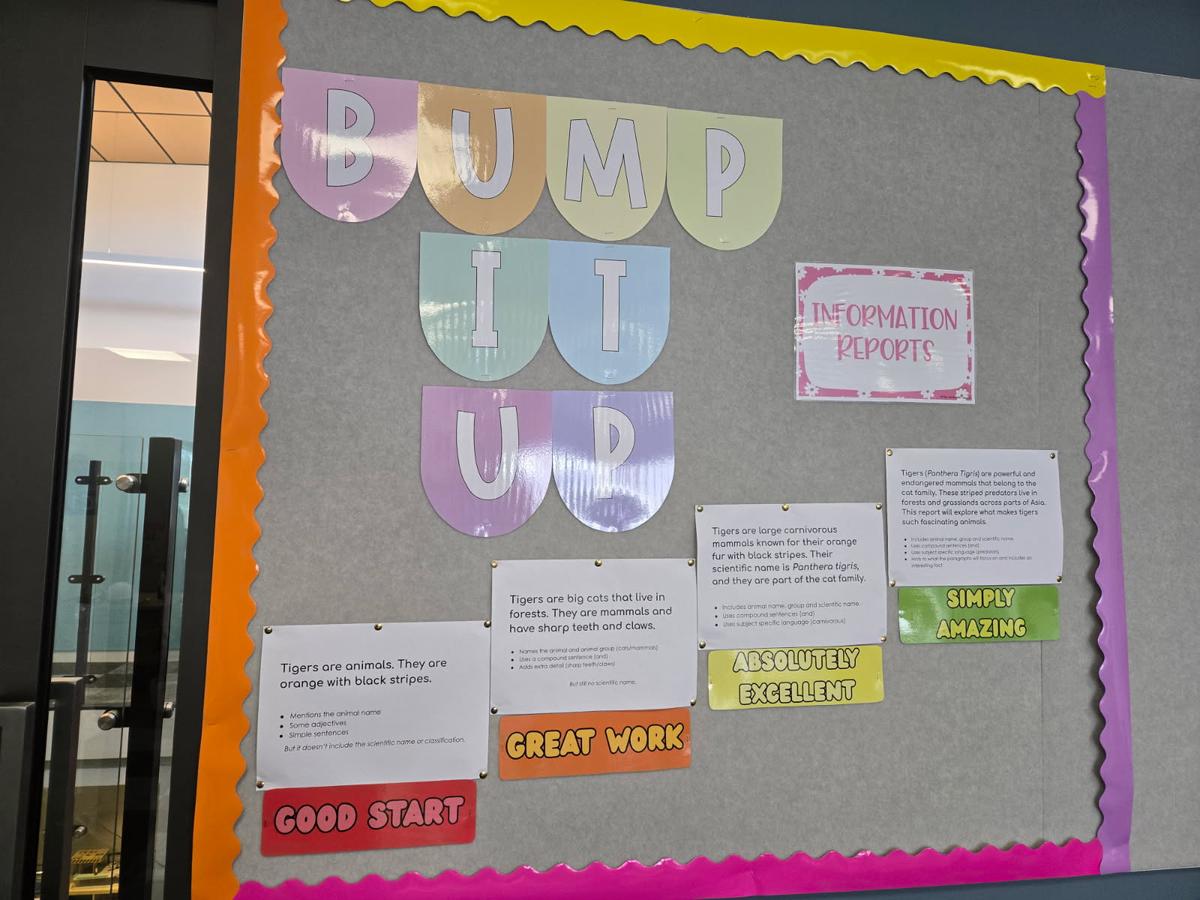 BUMP
IT
UP
INFORMATION
REPORTS
Tigers are animals. They are
orange with black stripes.
• Mentions the animal name
• Some adjectives
• Simple sentences
But it doesn't include the scientific name or classification.
GOOD START
Tigers are big cats that live in
forests. They are mammals and
have sharp teeth and claws.
• Names the animal and animal group (cats/mammals)
• Uses a compound sentence (and)
• Adds extra detail (sharp teeth/claws)
But still no scientific name.
GREAT WORK
Tigers are large carnivorous
mammals known for their orange
fur with black stripes. Their
scientific name is Panthera tigris,
and they are part of the cat family.
• Includes animal name, group and scientific name.
• Uses compound sentences (and)
• Uses subject specific language (carnivorous)
ABSOLUTELY
EXCELLENT
Tigers (Panthera Tigris) are powerful and
endangered mammals that belong to the
cat family. These striped predators live in
forests and grasslands across parts of Asia.
This report will explore what makes tigers
such fascinating animals.
• Includes animal name, group and scientific name.
• Uses compound sentences (and)
• Uses subject specific language (predators)
• Hints to what the paragraphs will focus on and includes an
interesting fact.
SIMPLY
AMAZING